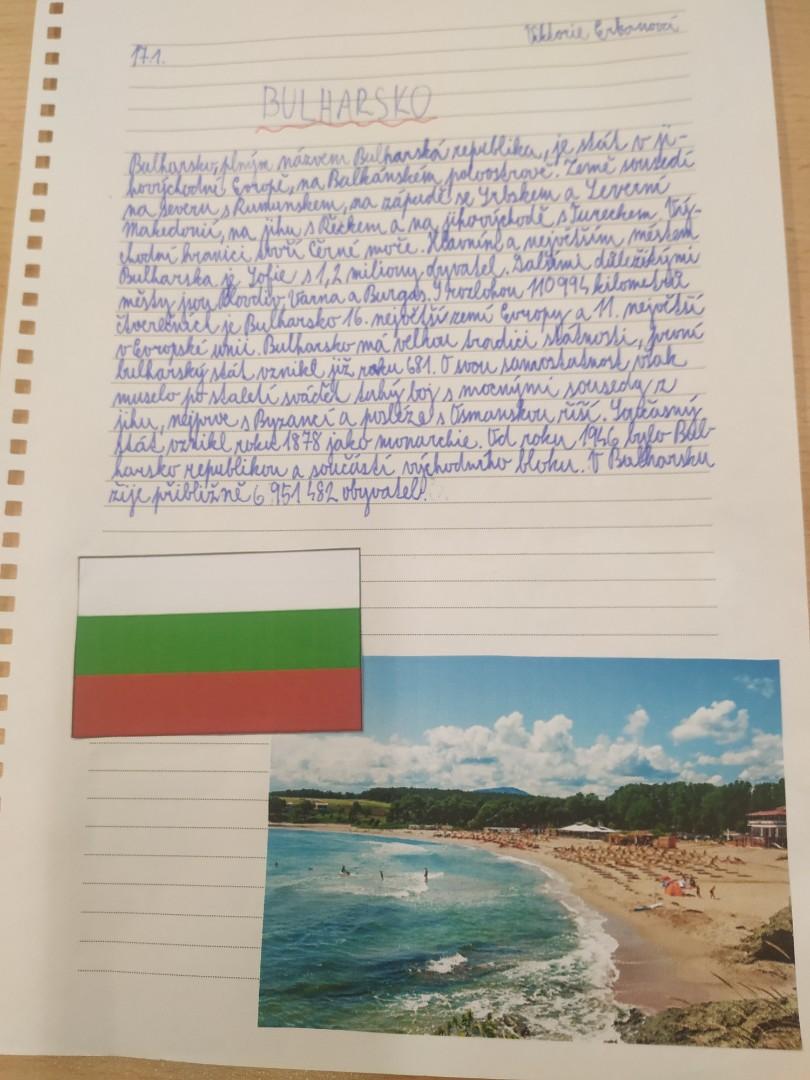 Viktorie Erbanová
17.1.
BULHARSKO
Bulharsko, plným názvem Bulharská republika, je stát v ji-
hovýchodní Evropě, na Balkánském poloostrově. Země sousedí
na severu s Rumunskem, na západě se Srbskem a Severní
Makedonií, na jihu s Řeckem a na jihovýchodě s Tureckem. Vý-
chodní hranici tvoří Černé moře. Hlavním a největším městem
Bulharska je Sofie s 1,2 miliony obyvatel. Dalšími důležitými
městy jsou Plovdiv, Varna a Burgas. S rozlohou 110 994 kilometrů
čtverečních je Bulharsko 16. největší zemí Evropy a 11. největší
v Evropské unii. Bulharsko má velkou tradici státnosti, první
bulharský stát vznikl již roku 681. O svou samostatnost však
muselo po staletí svádět tuhý boj s mocnými sousedy z
jihu, nejprve s Byzancí a posléze s Osmanskou říší. Současný
stát vznikl roku 1878 jako monarchie. Od roku 1946 bylo Bul-
harsko republikou a součástí východního bloku. V Bulharsku
žije přibližně 6 951 482 obyvatel.